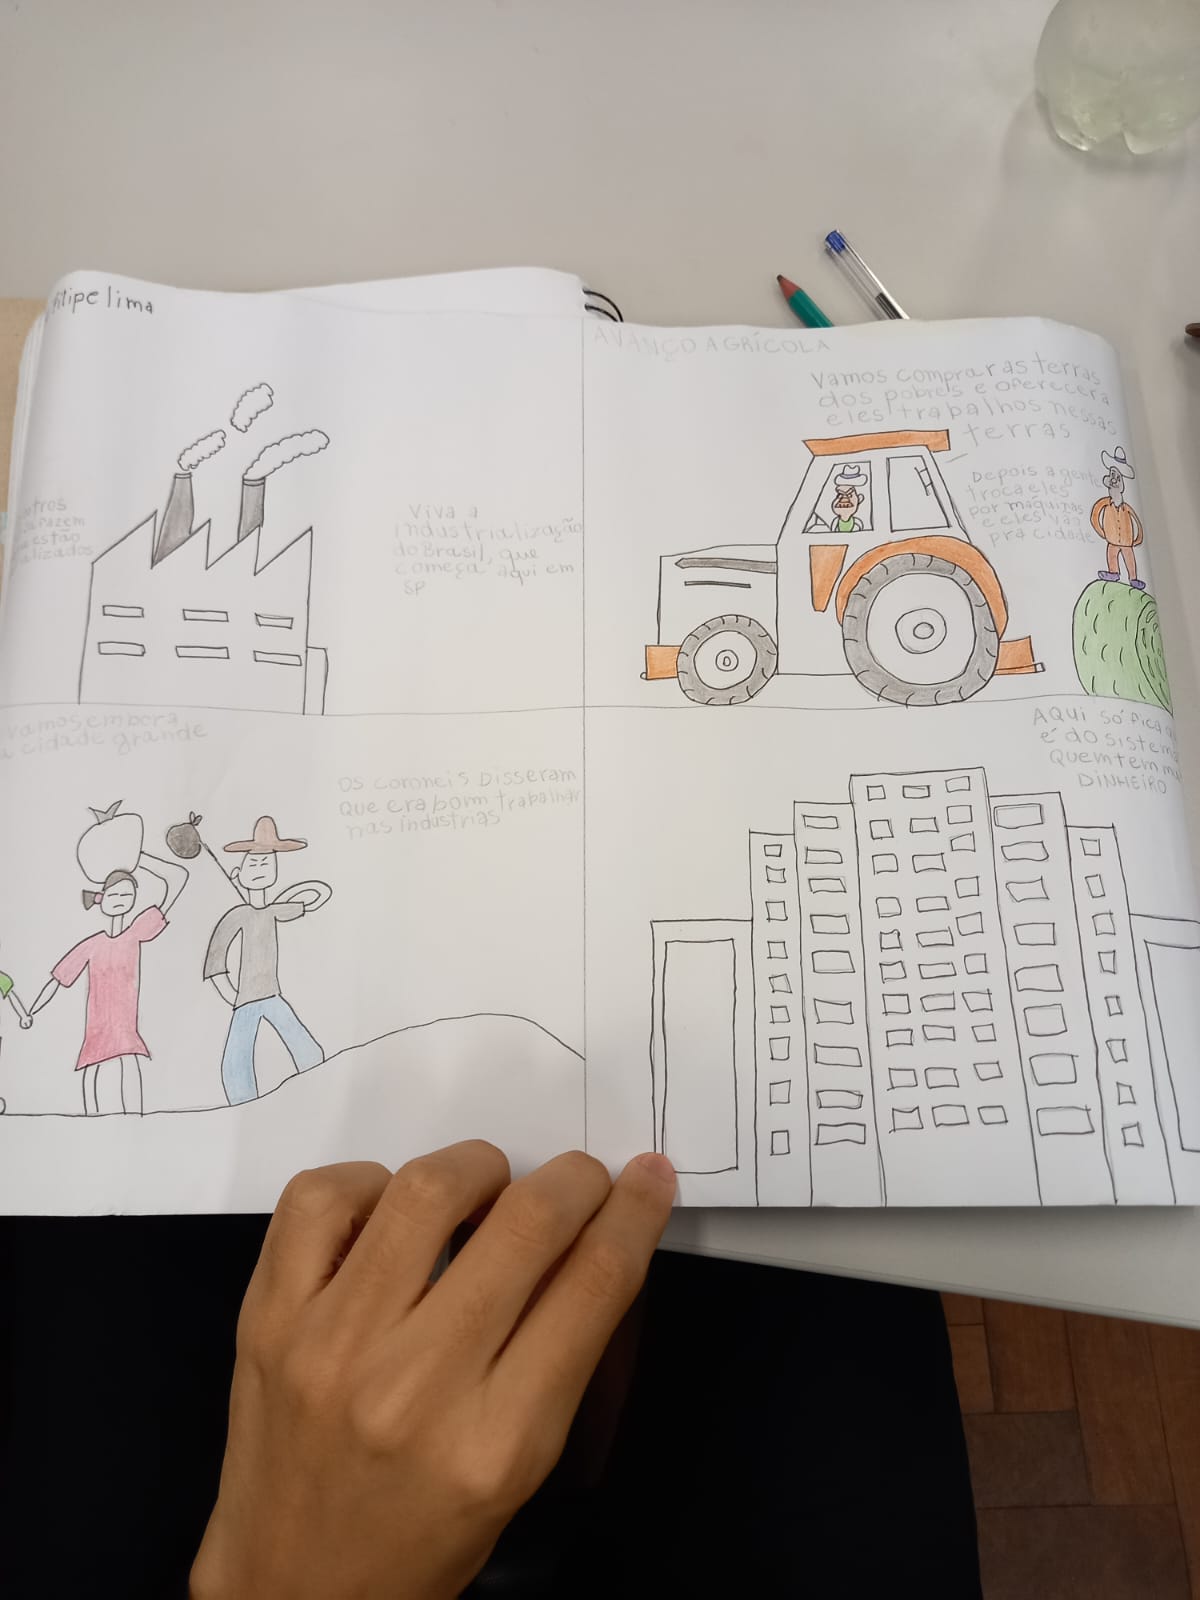 Filipe lima
estão
Viva a
industrialização
do Brasil, que
começa aqui em
SP
AVANÇO AGRÍCOLA
Vamos comprar as terras
dos pobres e oferecer a
eles trabalhos nessas
terras
Depois a gente
troca eles
por máquinas
e eles vão
pra cidade
vamos embora
cidade grande
Os coroneis disseram
que era bom trabalhar
nas industrias
AQUI SÓ FICA
é do sistema
Quem tem
DINHEIRO